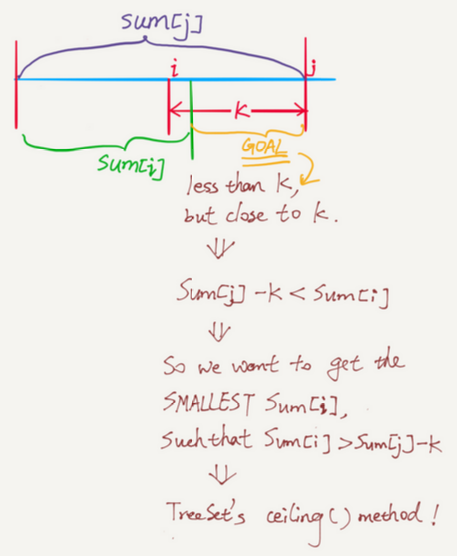 sum[j]
i
j
K
sum[i]
GOAL
less than k,
but close to k.
Sum[j] -k < Sum[i]
So we want to get the
SMALLEST Sum[i],
such that Sum[i] > Sum[j]-k
TreeSet's ceiling() method!